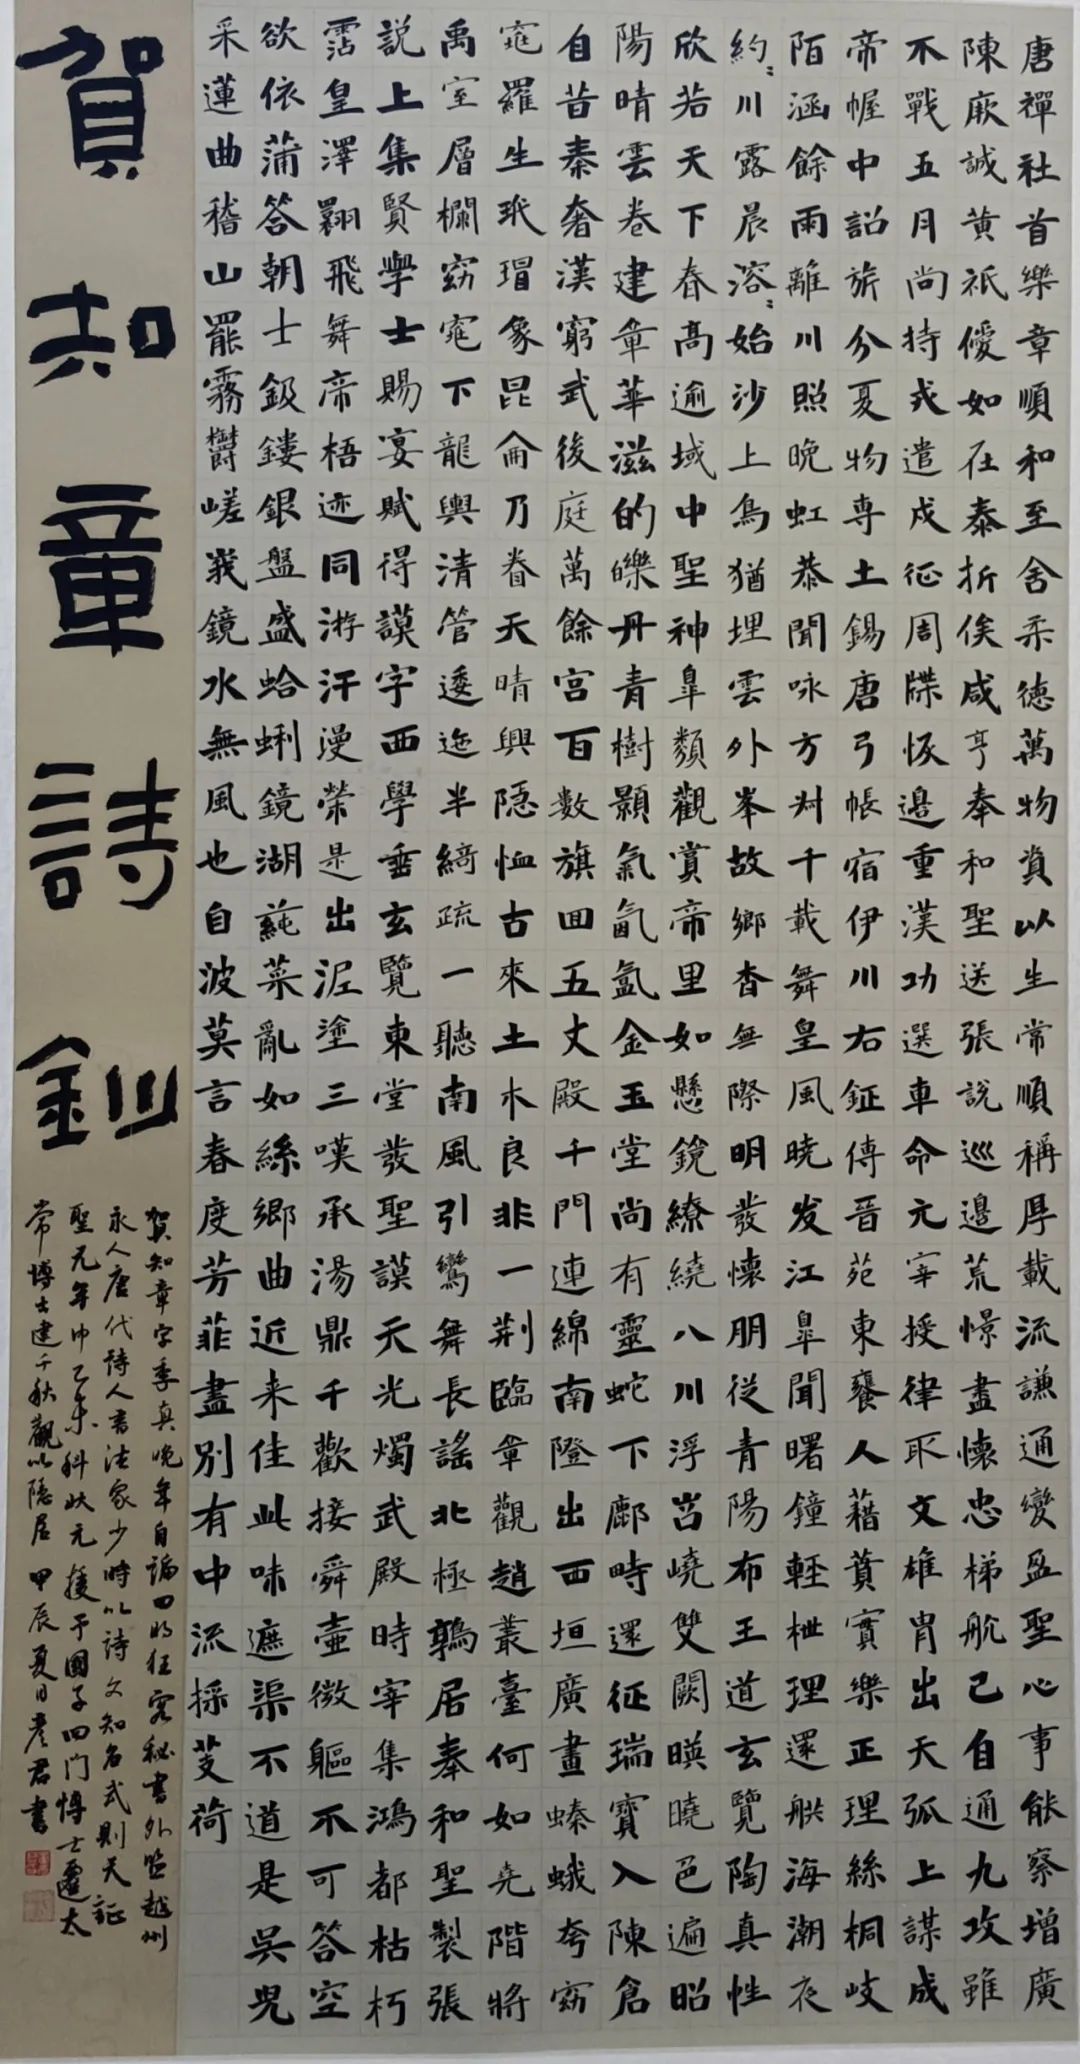 唐禪社首樂章順和至舍柔德萬物資以生常順稱厚載流謙通變盈聖心事能察增廣
陳厥誠黄祇僾如在泰折俟咸亨奉和聖送張説巡邊荒憬盡懷忠梯航已自通九攻雖
不戰五月尚持戎遣戍征周牒恢邊重漢功選車命元宰授律取文雄胄出天弧上謀成
帝幄中詔旂分夏物専土錫唐弓帳宿伊川右鉦傳晋苑東饔人藉蕡實樂正理絲桐岐
陌涵餘雨離川照晚虹恭聞咏方州千載舞皇風曉发江皐聞曙鐘輕枻理還舼海潮夜
約〻川露晨溶〻始沙上鳥猶埋雲外峯故鄉杳無際明發懷朋従青陽布王道玄覽陶真性
欣若天下春高逾域中聖神皐類觀賞帝里如懸鏡繚繞八川浮岧嶢雙闕暎曉邑遍昭
陽晴雲卷建章華滋的皪丹青樹顥氣氤氲金玉堂尚有靈蛇下鄜畤還征瑞寶入陳倉
自昔秦奢漢窮武後庭萬餘宮百数旗回五丈殿千門連綿南隥出西垣廣畫螓蛾夸窈
窕羅生玳瑁象昆侖乃眷天晴興隠恤古來土木良非一荆臨章觀趙叢臺何如堯階將
禹室層欄窈窕下龍輿清管逶迤半綺疏一聽南風引鸞舞長謠北極鶉居奉和聖製張
説上集賢學士賜宴賦得謨字西學垂玄覽東堂發聖謨天光燭武殿時宰集鴻都枯朽
霑皇澤翾飛舞帝梧迹同游汗漫榮是出泥塗三嘆承湯鼎千歡接舜壷微軀不可答空
欲依蒲答朝士鈒鏤銀盤盛蛤蜊鏡湖蒓菜亂如絲鄉曲近来佳此味遮渠不道是吳兒
采蓮曲稽山罷霧鬱嵯峩鏡水無風也自波莫言春度芳菲盡別有中流採芰荷
賀知章詩鈔
賀知章字季真晚年自謚四明狂客秘書外監越州
永人唐代詩人書法家少時以詩文知名武則天証
聖元年中乙未科状元援予國子四门博士遷太
常博士建千秋觀以隱居甲辰夏日彦君書